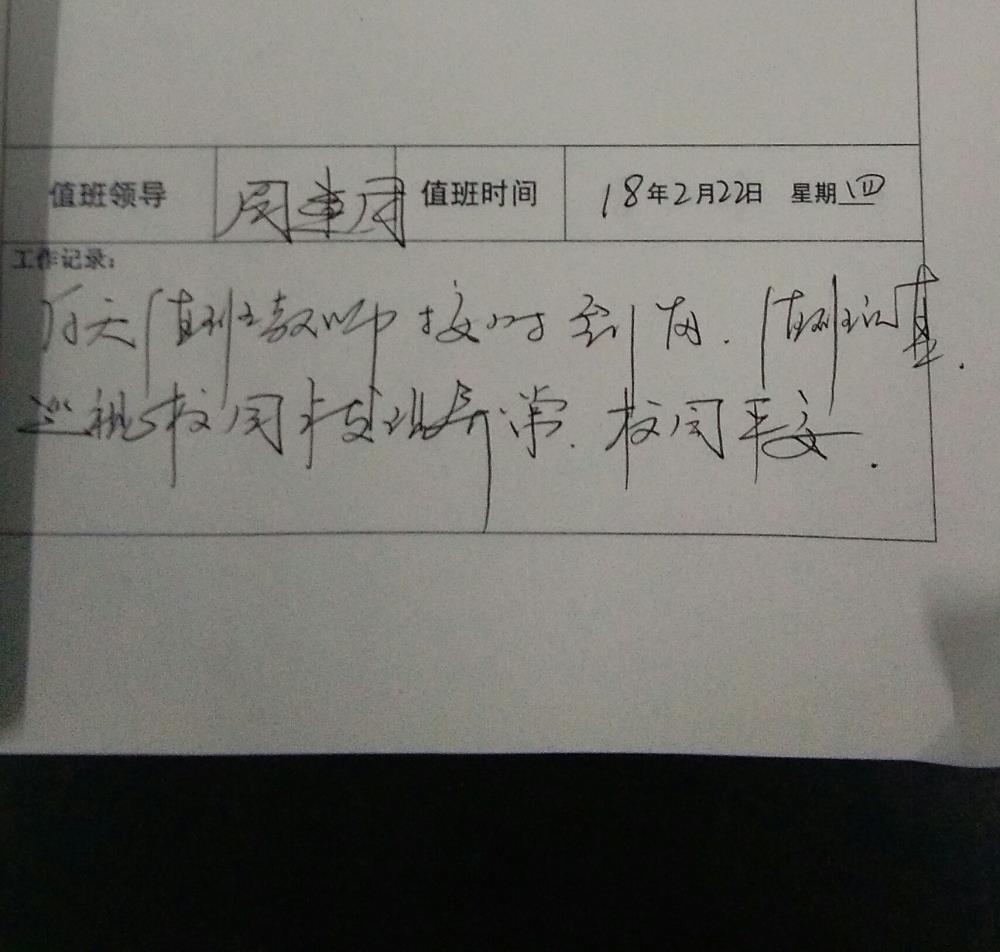 值班领导 值班时间 18年2月22日 星期四
工作记录:
值班教师按时到岗.值班认真.
巡视校园未发现异常.校园平安.